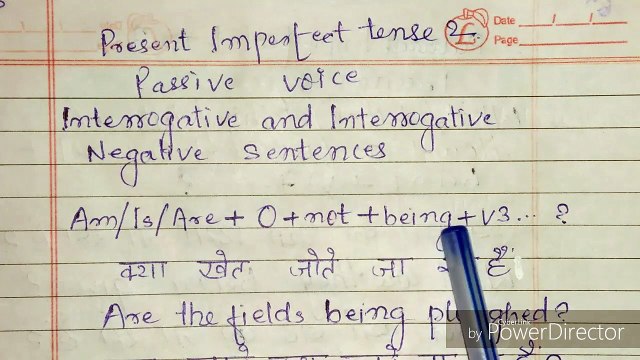 Present Imperfect tense 2
Date / /
Page
Passive voice
Interrogative and Interrogative
Negative Sentences
Am/Is/Are + O + not + being + V3... ?
क्या खेत जोते जा हैं
Are the fields being ploughed?
by PowerDirector